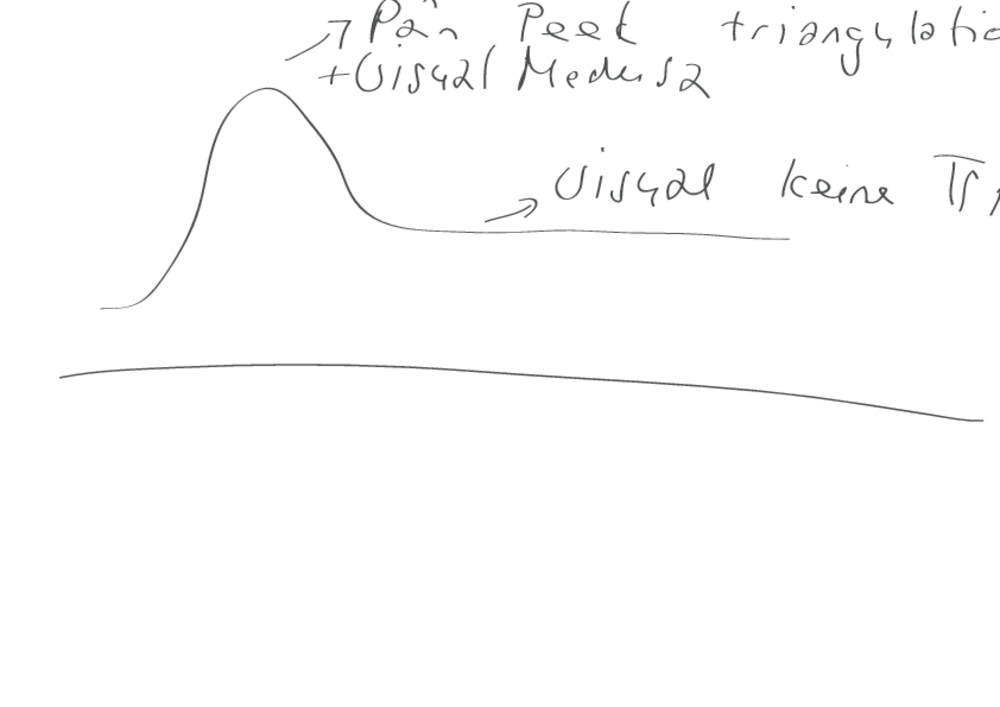 Pan Peek triangulatio
+ Visual Medusa
Visual keine Tr